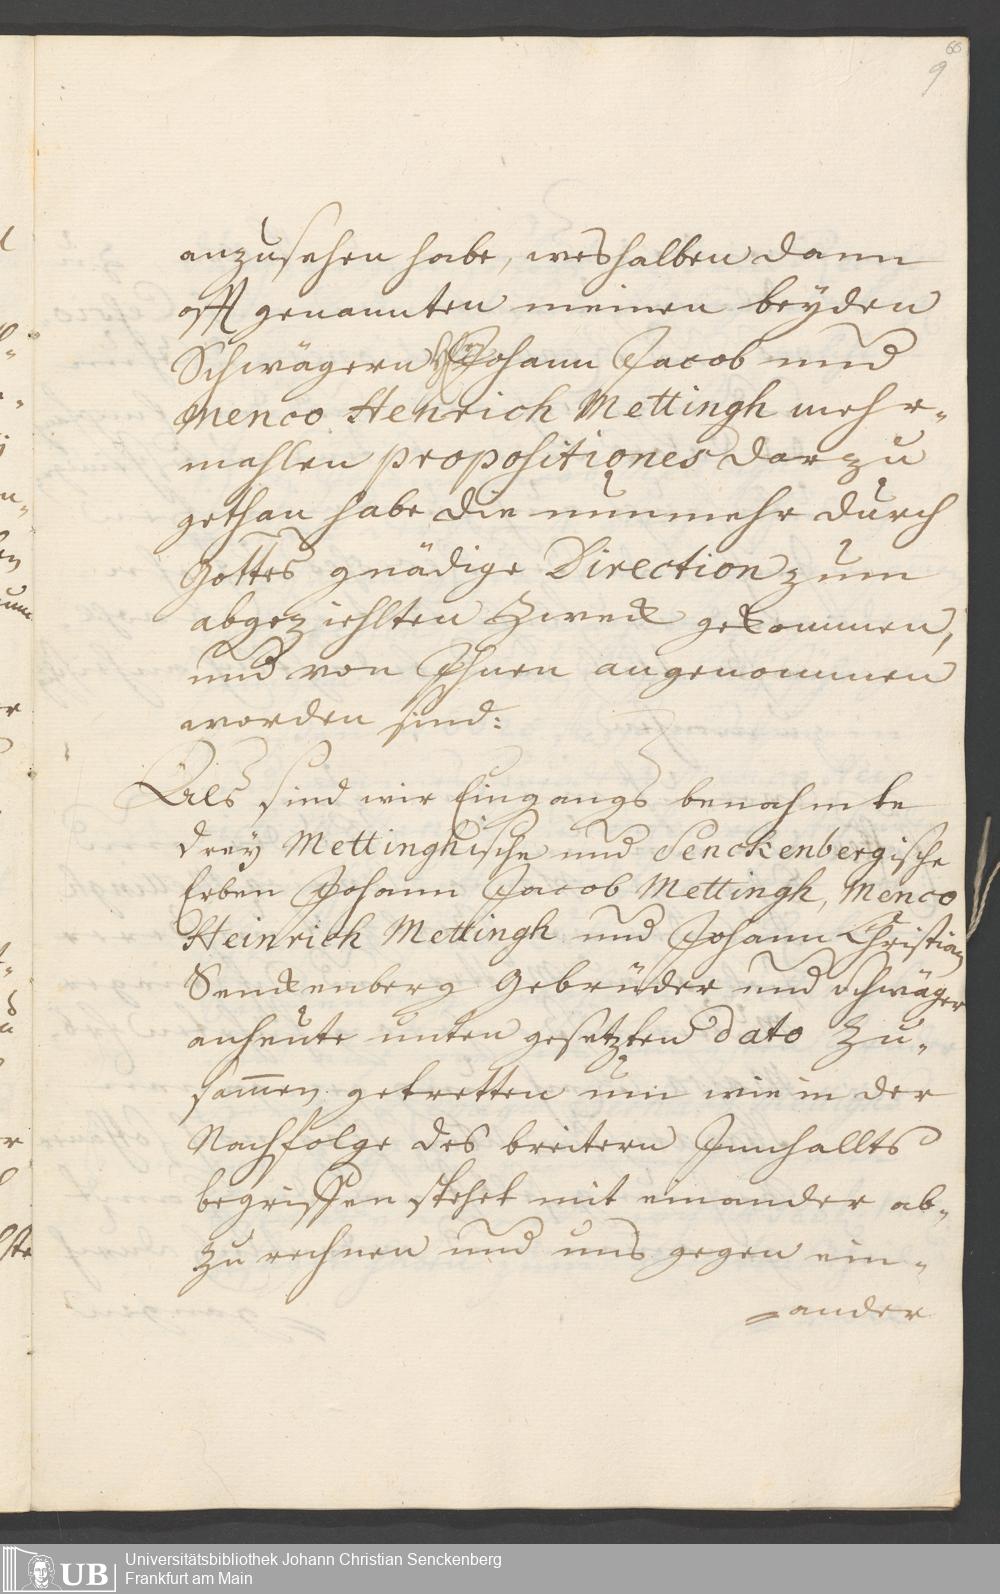 66
9
anzusehen habe, weshalben dann
offt genannten meinen beyden
Schwägern Johann Jacob und
Menco Henrich Mettingh mehr-
mahlen propositiones darzu
gethan habe die nunmehr durch
Gottes gnädige Direction zum
abgeziehlten Zweck gekommen,
und von Ihnen angenommen
worden sind:
Als sind wir Eingangs benahmte
drey Mettinghische und Senckenbergische
Erben Johann Jacob Mettingh, Menco
Heinrich Mettingh und Johann Christian
Senckenberg Gebrüder und Schwäger
anheute unten gesetzten dato Zu-
sam̅en getretten um wie in der
Nachfolge des breitern Innhallts
begriffen stehet mit einander ab-
zu rechnen und uns gegen ein-
=ander
UB
Universitätsbibliothek Johann Christian Senckenberg
Frankfurt am Main